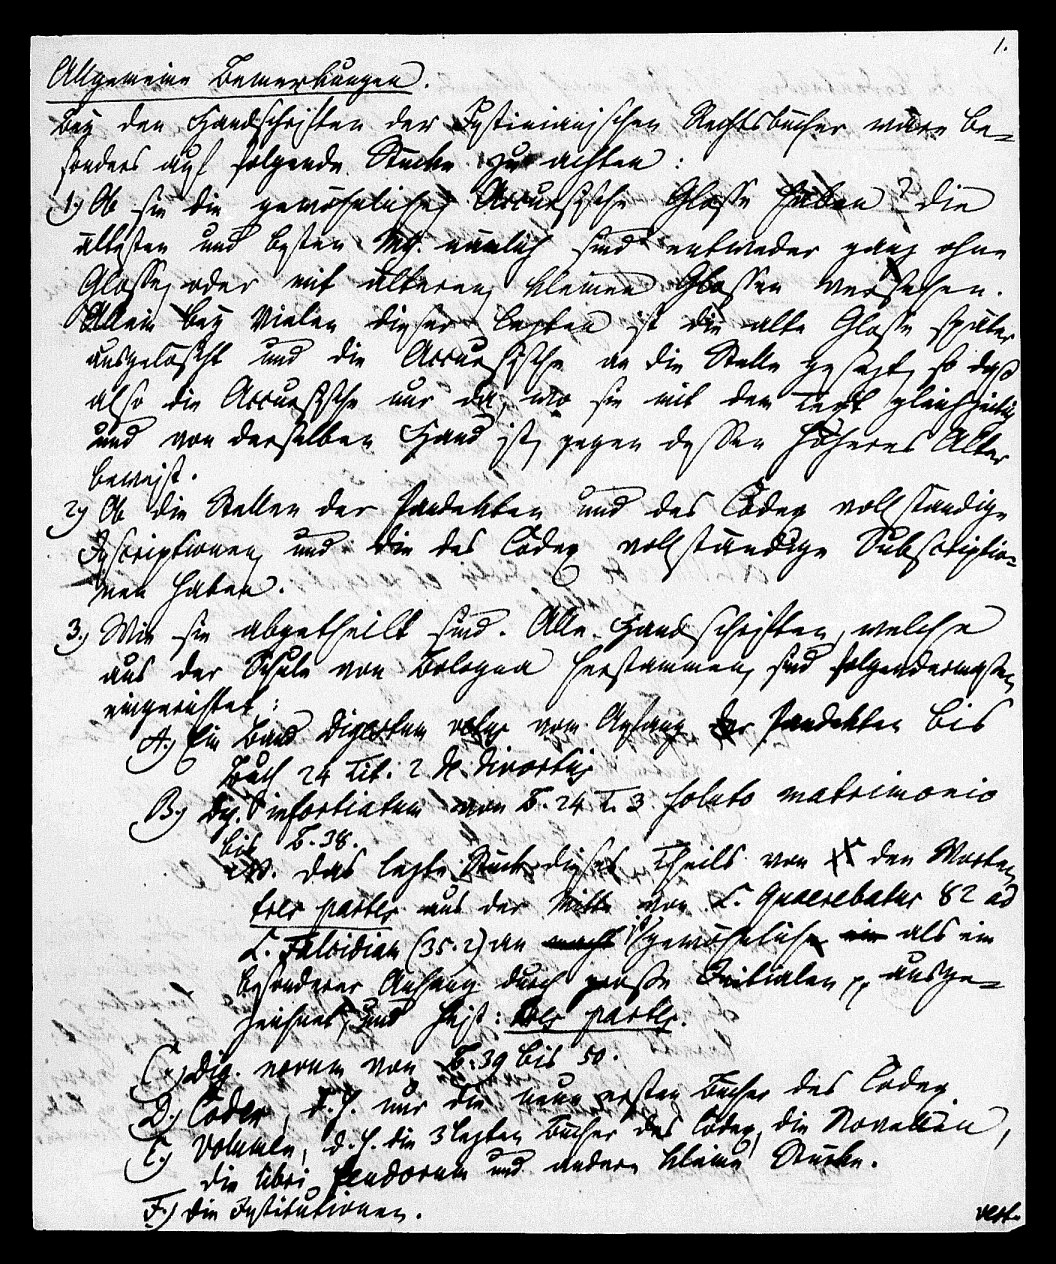 1.
Allgemeine Bemerkungen.
Bey den Handschriften der Justinianischen Rechtsbücher wäre be=
sonders auf folgende Stücke zu achten:
1) Ob sie die gewöhnliche Accursische Glosse haben? die
ältesten und besten nämlich sind entweder ganz ohne
Glosse, oder mit älteren, kleinen Glossen versehen.
Allein bey vielen dieser letzten ist die alte Glosse später
ausgelöscht und die Accursische an die Stelle gesetzt, so daß
also die Accursische nur da, wo sie mit dem Text gleichzeitig
und von derselben Hand ist, gegen dessen höheres Alter
beweist.
2) Ob die Stellen der Pandekten und des Codex vollständige
Inscriptionen, und die des Codex vollständige Subscriptio=
nen haben.
3.) Wie sie abgetheilt sind. Alle Handschriften, welche
aus der Schule von Bologna herstammen, sind folgendermaßen
eingerichtet:
A.) Ein Band Digestum vetus vom Anfang der Pandekten bis
Buch 24 Tit. 2 de divortiis
B.) Dig. infortiatum von B. 24 T. 3 soluto matrimonio
bis B. 38.
das letzte Stück dieses Theils von den Worten
tres partes aus der Mitte von L. Quaerebatur 82 ad
L. Falcidiam (35. 2) an gewöhnlich als ein
besonderer Anfang durch große Initialen pp ausge=
zeichnet, und heist: tres partes.
C.) Dig. novum von B. 39 bis 50.
D.) Codex, d. h. nur die neun ersten Bücher des Codex
E.) Volumen, d. h. die 3 letzten Bücher des Codex, die Novellen,
die libri feudorum und andere kleine Stücke.
F.) die Institutionen.